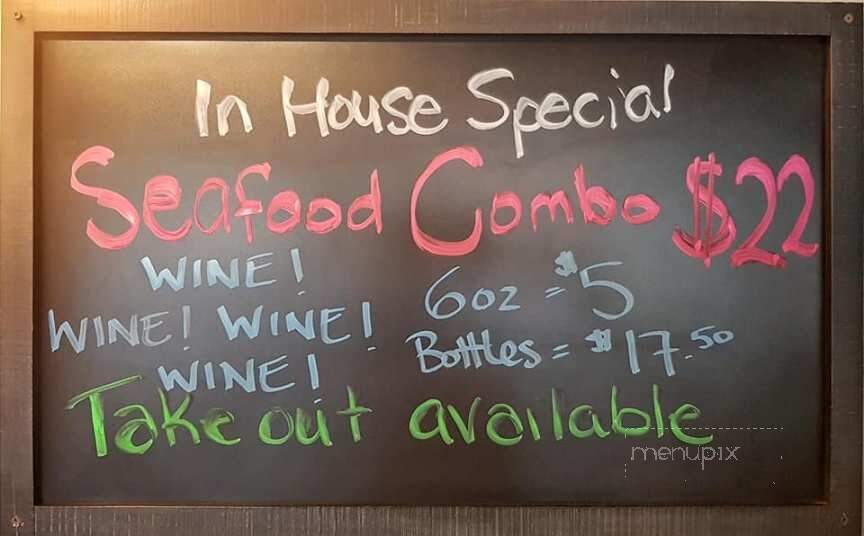 In House Special
Seafood Combo $22
WINE!
WINE! WINE!
WINE!
6oz = $5
Bottles = $17.50
Take out available
menupix